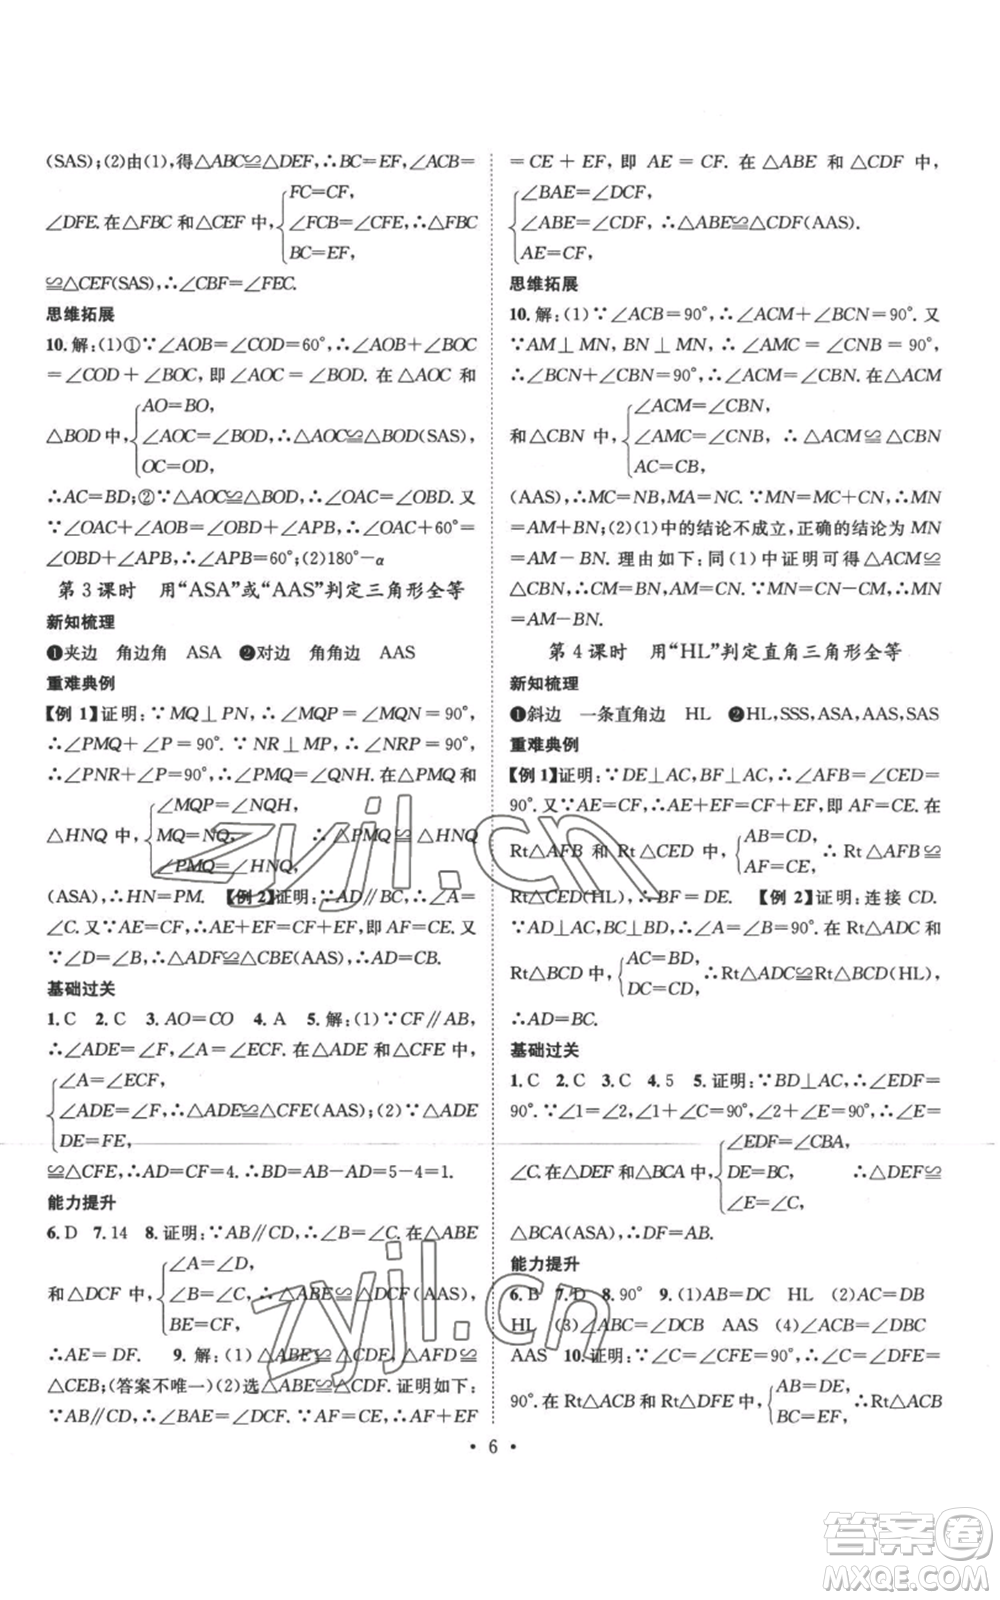 (SAS);(2)由(1),得△ABC≌△DEF,∴BC=EF,∠ACB=
FC=CF,
∠DFE.在△FBC 和△CEF 中,∠FCB=∠CFE,∴△FBC
BC=EF,
≌△CEF(SAS),∴∠CBF=∠FEC.
思维拓展
10.解:(1)①∵∠AOB=∠COD=60°,∴∠AOB+∠BOC
=∠COD+∠BOC,即∠AOC=∠BOD.在△AOC 和
AO=BO,
△BOD 中,∠AOC=∠BOD,∴△AOC≌△BOD(SAS),
OC=OD,
∴AC=BD;②∵△AOC≌△BOD,∴∠OAC=∠OBD.又
∵∠OAC+∠AOB=∠OBD+∠APB,∴∠OAC+60°=
∠OBD+∠APB,∴∠APB=60°;(2)180°-α
第 3 课时 用“ASA”或“AAS”判定三角形全等
新知梳理
❶夹边 角边角 ASA ❷对边 角角边 AAS
重难典例
【例 1】证明:∵MQ⊥PN,∴∠MQP=∠MQN=90°,
∴∠PMQ+∠P=90°.∵NR⊥MP,∴∠NRP=90°,
∴∠PNR+∠P=90°,∴∠PMQ=∠QNH.在△PMQ 和
∠MQP=∠NQH,
△HNQ 中,MQ=NQ, ∴△PMQ≌△HNQ
∠PMQ=∠HNQ,
(ASA),∴HN=PM. 【例 2】证明:∵AD∥BC,∴∠A=
∠C.又∵AE=CF,∴AE+EF=CF+EF,即AF=CE.又
∵∠D=∠B,∴△ADF≌△CBE(AAS),∴AD=CB.
基础过关
1.C 2.C 3.AO=CO 4.A 5.解:(1)∵CF∥AB,
∴∠ADE=∠F,∠A=∠ECF.在△ADE 和△CFE 中,
∠A=∠ECF,
∠ADE=∠F,∴△ADE≌△CFE(AAS);(2)∵△ADE
DE=FE,
≌△CFE,∴AD=CF=4.∴BD=AB-AD=5-4=1.
能力提升
6.D 7.14 8.证明:∵AB∥CD,∴∠B=∠C.在△ABE
∠A=∠D,
和△DCF 中,∠B=∠C,∴△ABE≌△DCF(AAS),
BE=CF,
∴AE=DF. 9.解:(1)△ABE≌△CDF,△AFD≌
△CEB;(答案不唯一)(2)选△ABE≌△CDF.证明如下:
∵AB∥CD,∴∠ABE=∠DCF.∵AF=CE,∴AF+EF
=CE+EF,即 AE=CF.在△ABE 和△CDF 中,
∠BAE=∠DCF,
∠ABE=∠CDF,∴△ABE≌△CDF(AAS).
AE=CF,
思维拓展
10.解:(1)∵∠ACB=90°,∴∠ACM+∠BCN=90°.又
∵AM⊥MN,BN⊥MN,∴∠AMC=∠CNB=90°,
∴∠BCN+∠CBN=90°,∴∠ACM=∠CBN.在△ACM
∠ACM=∠CBN,
和△CBN 中,∠AMC=∠CNB,∴△ACM≌△CBN
AC=CB,
(AAS),∴MC=NB,MA=NC.∵MN=MC+CN,∴MN
=AM+BN;(2)(1)中的结论不成立,正确的结论为 MN
=AM-BN.理由如下:同(1)中证明可得△ACM≌
△CBN,∴CM=BN,AM=CN.∵MN=CN-CM,∴MN
=AM-BN.
第 4 课时 用“HL”判定直角三角形全等
新知梳理
❶斜边 一条直角边 HL ❷HL,SSS,ASA,AAS,SAS
重难典例
【例 1】证明:∵DE⊥AC,BF⊥AC,∴∠AFB=∠CED=
90°.又∵AE=CF,∴AE+EF=CF+EF,即AF=CE.在
AB=CD,
Rt△AFB 和 Rt△CED 中, ∴Rt△AFB≌
AF=CE,
Rt△CED(HL),∴BF=DE. 【例 2】证明:连接 CD.
∵AD⊥AC,BC⊥BD,∴∠A=∠B=90°.在 Rt△ADC 和
AC=BD,
Rt△BCD 中, ∴Rt△ADC≌Rt△BCD(HL),
DC=CD,
∴AD=BC.
基础过关
1.C 2.C 3.C 4.5 5.证明:∵BD⊥AC,∴∠EDF=
90°.∵∠1=∠2,∠1+∠C=90°,∠2+∠E=90°,∴∠E=
∠EDF=∠CBA,
∠C.在△DEF 和△BCA 中,DE=BC, ∴△DEF≌
∠E=∠C,
△BCA(ASA),∴DF=AB.
能力提升
6.B 7.D 8.90° 9.(1)AB=DC HL (2)AC=DB
HL (3)∠ABC=∠DCB AAS (4)∠ACB=∠DBC
AAS 10.证明:∵∠C=∠CFE=90°,∴∠C=∠DFE=
AB=DE,
90°.在 Rt△ACB 和 Rt△DFE 中, ∴Rt△ACB
BC=EF,
• 6 •
zyjl.cn
zyjl.cn
答案卷
MXQE.COM